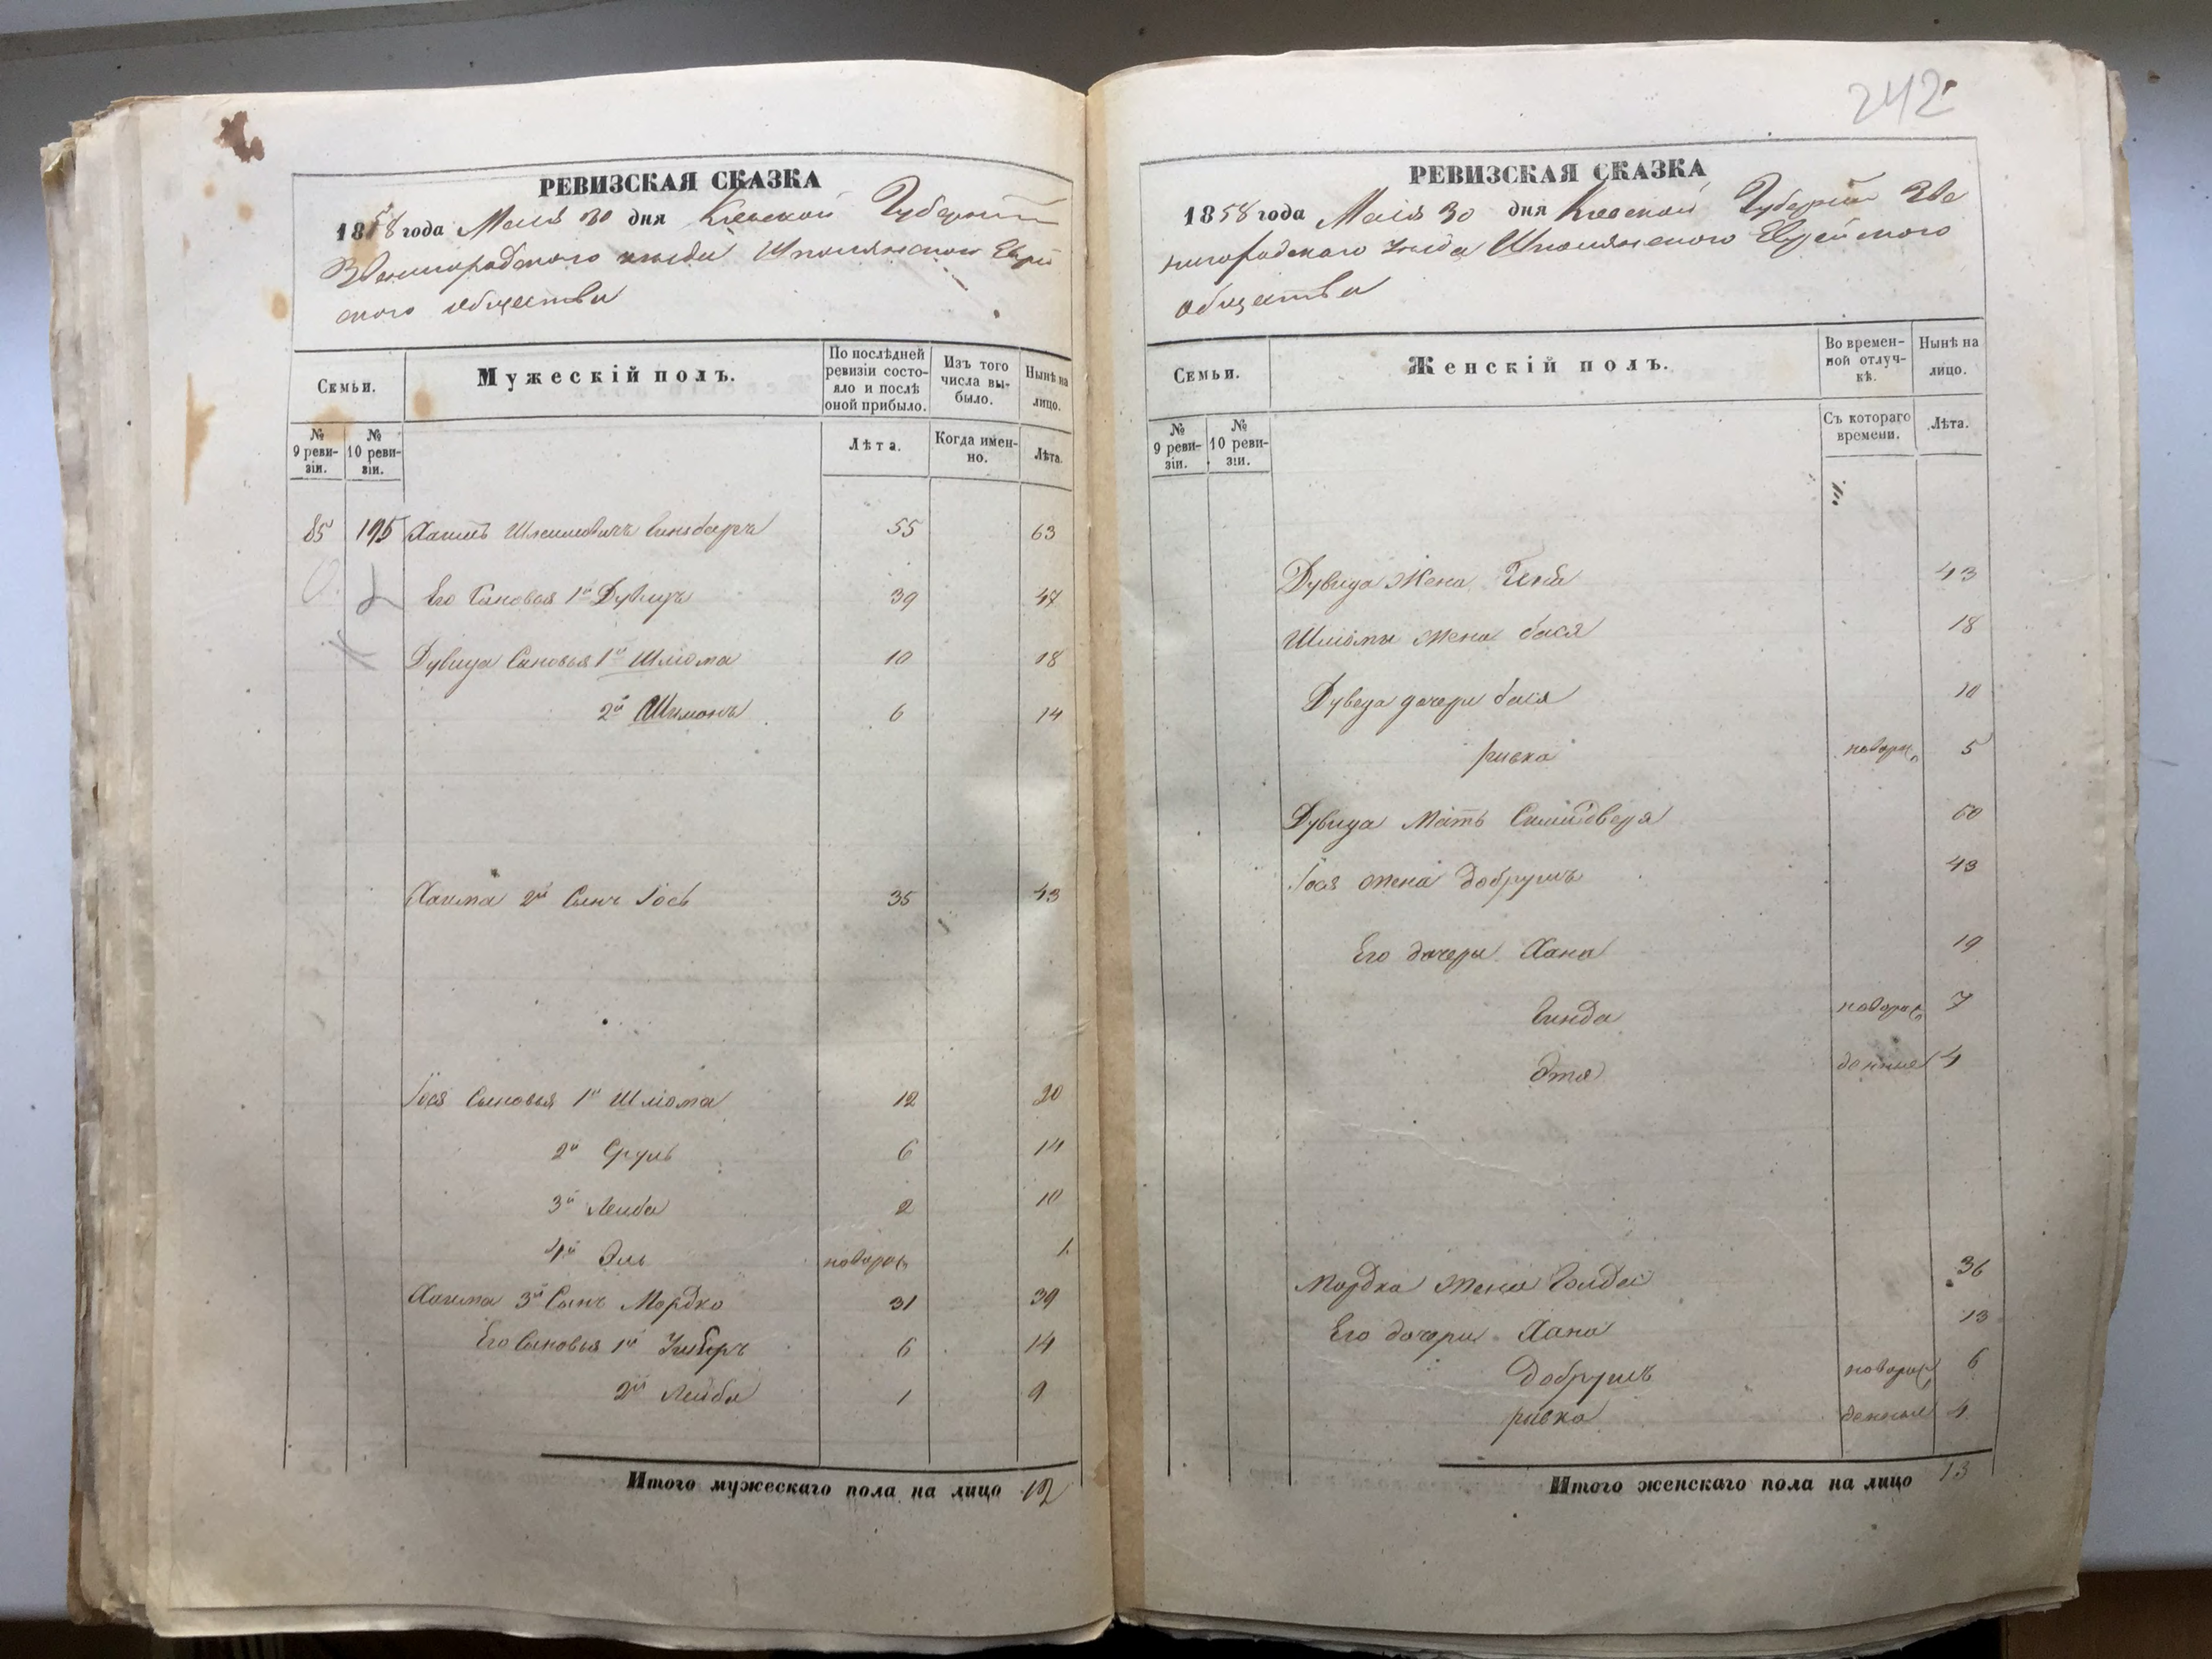 РЕВИЗСКАЯ СКАЗКА
1858 года Маія 30 дня Кіевской Губерніи
Звенигородского уезда Шполянского Еврей
ского общества
Семьи.
Мужескій полъ.
По послѣдней ревизіи состояло и послѣ оной прибыло.
Изъ того числа выбыло.
Нынѣ на лицо.
№ 9 ревизіи.
№ 10 ревизіи.
Лѣта.
Когда именно.
Лѣта.
85 195 Хаимъ Шлемовичъ Гинзберхъ 55 63
Его Сыновья 1й Дувидъ 39 47
Дувида Сыновья 1й Шліома 10 18
2й Шимонъ 6 14
Хаима 2й Сынъ Іось 35 43
Іося Сыновья 1й Шліома 12 20
2й Сруль 6 14
3й Лейба 2 10
4й Эль новорож 1
Хаима 3й Сынъ Мордко 31 39
Его Сыновья 1й 6 14
2й Лейба 1 9
Итого мужескаго пола на лицо 12
242
РЕВИЗСКАЯ СКАЗКА
1858 года Маія 30 дня Кіевской Губерніи Зве
нигородскаго уезда Шполянского Еврейского
общества
Семьи.
Женскій полъ.
Во временной отлучкѣ.
Нынѣ на лицо.
№ 9 ревизіи.
№ 10 ревизіи.
Съ котораго времени.
Лѣта.
Дувида Жена 43
Шліомы жена бася 18
Дувида дочери бася 10
ривка новорож 5
Дувида Мать 60
Іося жена Добрушъ 43
Его дочери Хана 19
Гинда новорож 7
Этя денные 4
Мордка жена Голда 36
Его дочери Хана 13
Добрушъ новорож 6
ривка денные 4
Итого женскаго пола на лицо 13